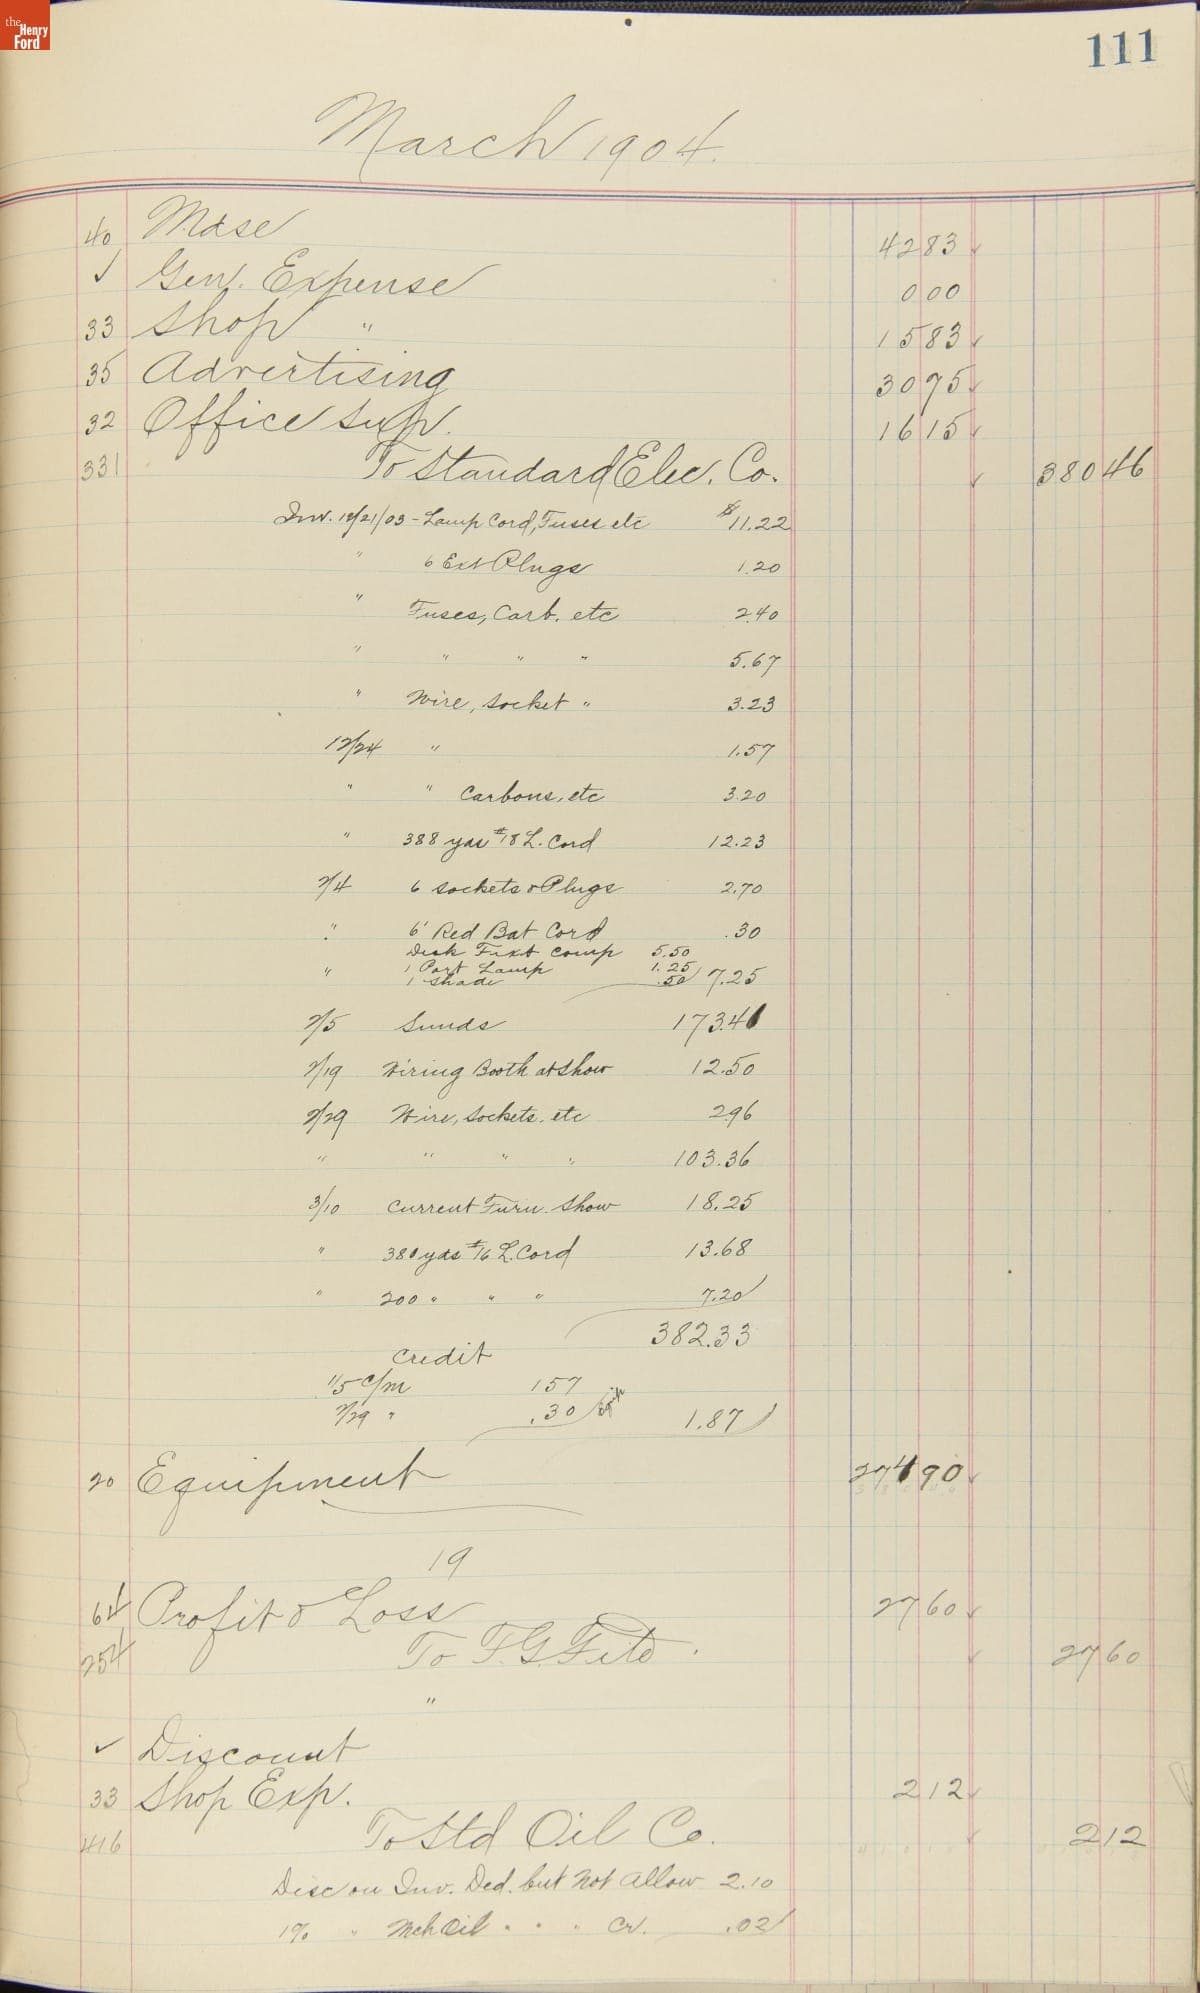 the Henry Ford
111
March 1904.
40 Mdse 42 83 ✓
✓ Gen. Expense 0 00
33 Shop " 15 83 ✓
35 Advertising 30 75 ✓
32 Office Sup. 16 15 ✓
331 To Standard Elec. Co. ✓ 380 46
Inv. 12/21/03 - Lamp Cord, Fuses etc $11.22
" 6 Ext Plugs 1.20
" Fuses, Carb. etc 2.40
" " " " 5.67
" Wire, Socket " 3.23
12/24 " 1.57
" " Carbons, etc 3.20
" 388 yds #18 L. Cord 12.23
2/4 6 sockets & Plugs 2.70
" 6' Red Bat Cord .30
Desk Fixt Comp 5.50
1 Port Lamp 1.25
" 1 Shade .50 7.25
2/5 Sunds 173.41
2/19 Wiring Booth at Show 12.50
2/29 Wire, Sockets, etc 2.96
" " " " 103.36
3/10 Current Furn. Show 18.25
" 380 yds #16 L. Cord 13.68
" 200 " " " 7.20
382.33
Credit
1/5 C/m 1 57
2/29 " .30 1.87
20 Equipment 274 90 ✓
19
64 Profit & Loss 27 60 ✓
254 To F.G. Fite ✓ 27 60
"
✓ Discount
33 Shop Exp. 2 12 ✓
416 To Std Oil Co. ✓ 2 12
Disc on Inv. Ded. but Not Allow 2.10
1% " Mch Oil " " " Cr. .02